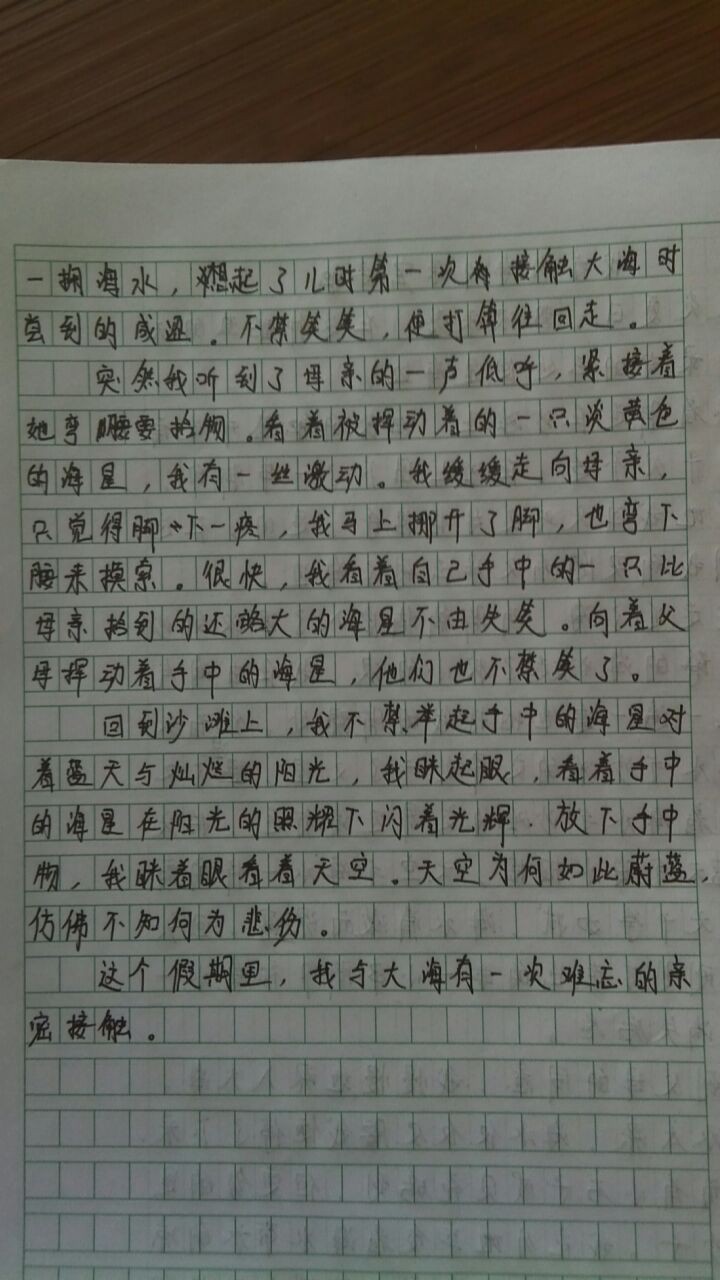 一掬海水，想起了儿时第一次接触大海时
尝到的咸涩。不禁笑笑，便打转往回走。
突然我听到了母亲的一声低呼，紧接着
她弯腰要拾物。看着被挥动着的一只淡黄色
的海星，我有一丝激动。我缓缓走向母亲，
只觉得脚下一疼，我马上挪开了脚，也弯下
腰来摸索。很快，我看着自己手中的一只比
母亲拾到的还略大的海星不由失笑。向着父
母挥动着手中的海星，他们也不禁笑了。
回到沙滩上，我不禁举起手中的海星对
着蓝天与灿烂的阳光，我眯起眼，看着手中
的海星在阳光的照耀下闪着光辉．放下手中
物，我眯着眼看着天空。天空为何如此蔚蓝，
仿佛不知何为悲伤。
这个假期里，我与大海有一次难忘的亲
密接触。